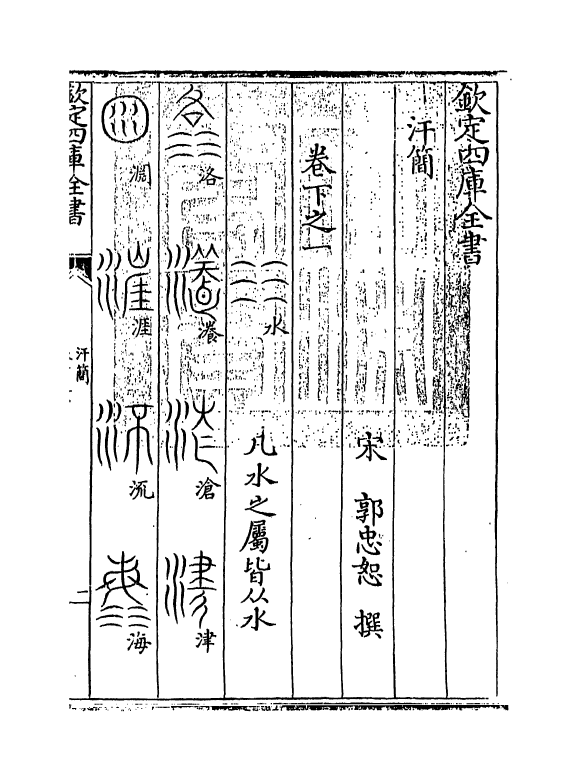 欽定四庫全書
汗簡
宋 郭忠恕 撰
卷下之一
水 凡水之屬皆从水
洛 瀁 滄 津
淵 涯 流 海
欽定四庫全書 汗簡 二